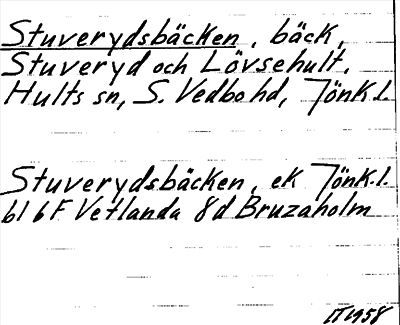 Stuverydsbäcken, bäck,
Stuveryd och Lövsehult,
Hults sn, S. Vedbo hd, Jönk.l.
Stuverydsbäcken, ek Jönk.l.
bl 6 F Vetlanda 8d Bruzaholm
IT 1958